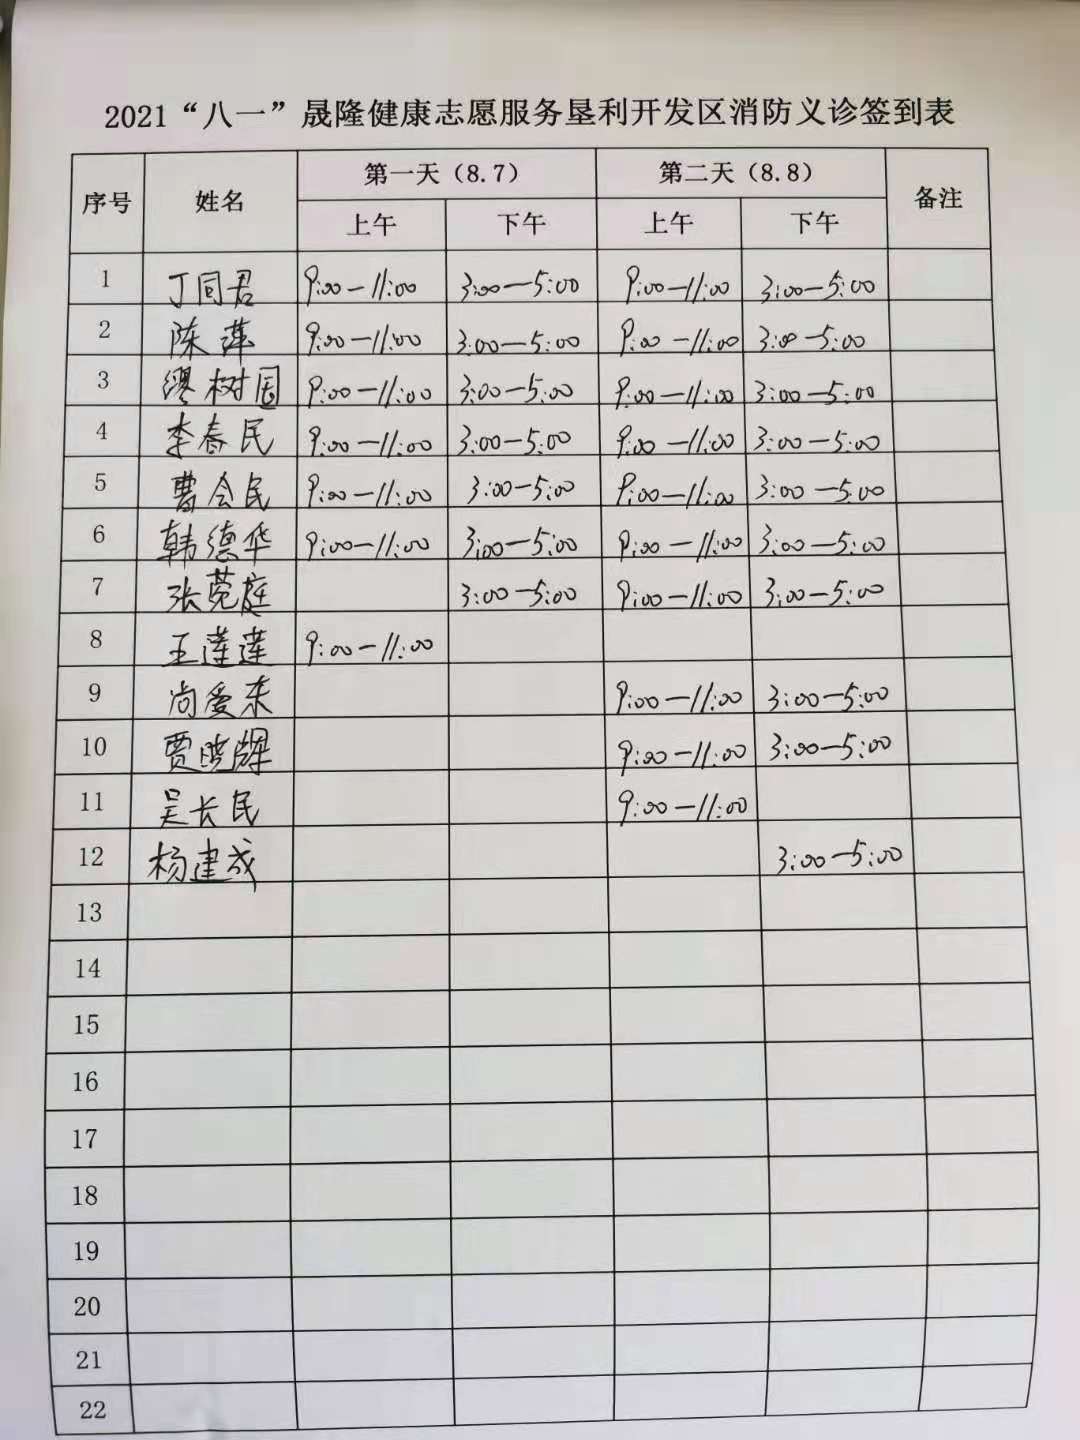 2021“八一”晟隆健康志愿服务垦利开发区消防义诊签到表
序号 姓名 第一天（8.7） 第二天（8.8） 备注
上午 下午 上午 下午
1 丁同君 9:00—11:00 3:00—5:00 9:00—11:00 3:00—5:00
2 陈萍 9:00—11:00 3:00—5:00 9:00—11:00 3:00—5:00
3 缪树国 9:00—11:00 3:00—5:00 9:00—11:00 3:00—5:00
4 李春民 9:00—11:00 3:00—5:00 9:00—11:00 3:00—5:00
5 曹会民 9:00—11:00 3:00—5:00 9:00—11:00 3:00—5:00
6 韩德华 9:00—11:00 3:00—5:00 9:00—11:00 3:00—5:00
7 张苑庭 3:00—5:00 9:00—11:00 3:00—5:00
8 王莲莲 9:00—11:00
9 尚爱东 9:00—11:00 3:00—5:00
10 贾晓辉 9:00—11:00 3:00—5:00
11 吴长民 9:00—11:00
12 杨建成 3:00—5:00
13
14
15
16
17
18
19
20
21
22